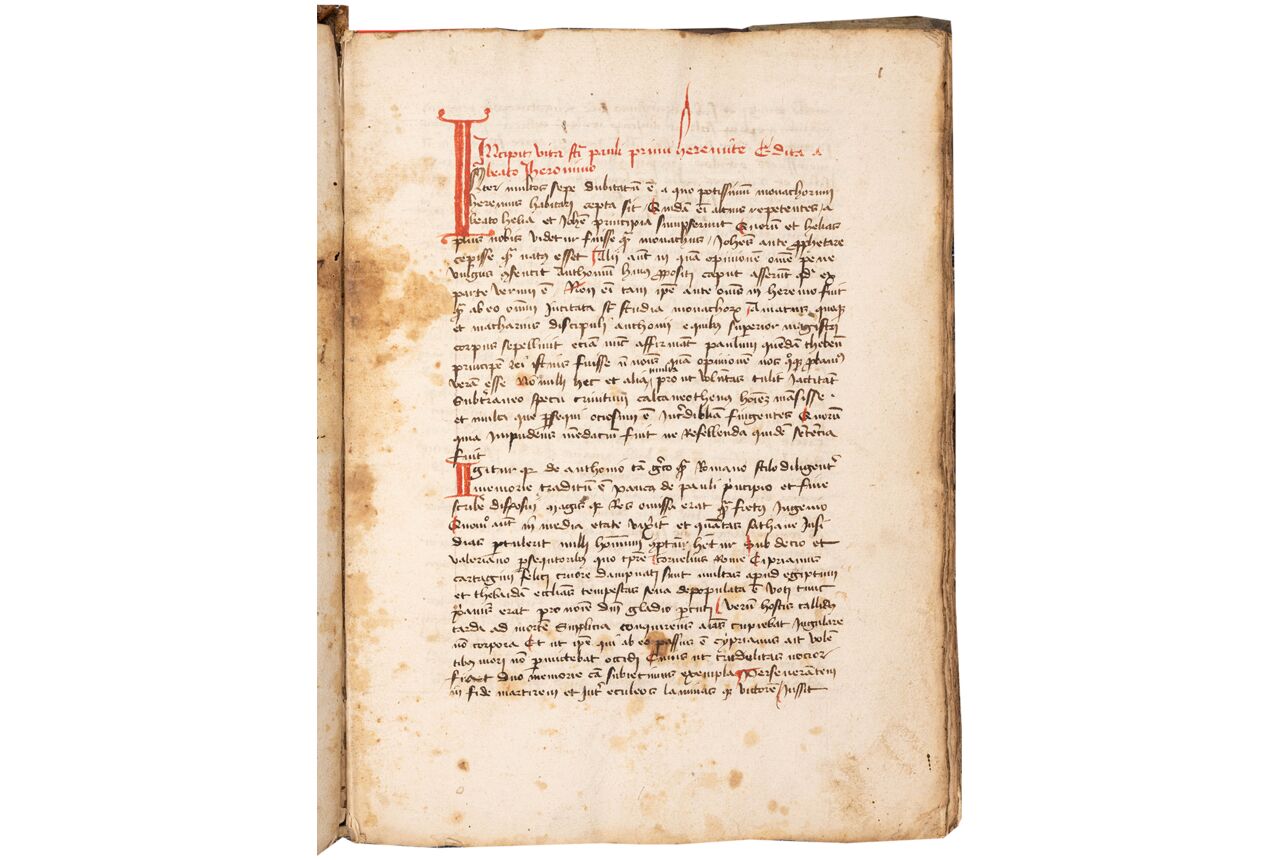 1
INcipit vita sci pauli primi heremite Edita a
beato Jheronimo
Inter multos sepe dubitatū ē a quo potissimū monachorum
heremus habitari cepta sit Quidā ei altius repetentes a
beato helia et Johē principia sumpserunt Quorū et helias
plus nobis videtur fuisse qͣ monachus / Johēs ante prophetare
cepisse qͣ natus esset Alii aut in quā opinionē omē pene
vulgus 9sentit Anthoniū huius propositi caput asserūt qd ex
parte verum ē Non ei tam ipē ante omēs in heremo fuit
qͣ ab eo omnī incitata st studia monachorꝝ Amatus quoqꝫ
et macharius discipuli anthonii e quibus superior magistri
corpus sepelliuit etiam nūc affirmāt paulum quēdā thebeū
principem rei istius fuisse nō nois quā opinionē nos quoqꝫ probamꝰ
verā esse Nonulli hec et alia prout volūtas tulit Jactitāt
Subtͬraneo specu crinitum calcaneotenus hoiēꝫ mansisse
et multa que persequi ociosum ē Incredibilia fingentes Quorū
quia impudens mēdaciū fuit ne Refellenda quidē sētencia
fuit
Igitur qꝛ de anthonio tā grͦco qͣ Romano stilo diligentͬ
memorie traditū ē pauca de pauli principio et fine
scribͬe disposui magis qꝛ Res omissa erat qͣ fretus Ingenio
Quomͦ aut in media etate vixͬit et quātas sathane Insi
dias pertulerit nulli hominum 9ptum hetur Sub decio et
valeriano persequtoribus quo tpͬe Cornelius Rome Ciprianus
cartagini felici cruore dampnati sunt multas apud egiptum
et thebaidā ecclias tempestas seua depopulata ē Voti tunc
xͬpianis erat pro noie dni gladio percuti Verū hostis callidꝰ
tarda ad mortē Supplicia conquirens aīas cupiebat Jugulare
nō corpora Et ut ipē qui ab eo passus ē cyprianus ait volē
tibus mori nō permittebat occidi Cuius ut crudelitas nocior
fieret duo memorie cā subiecimus exempla Perseverātem
in fide martirem et intͬ eculeos laminas qꝫ victorē Jussit